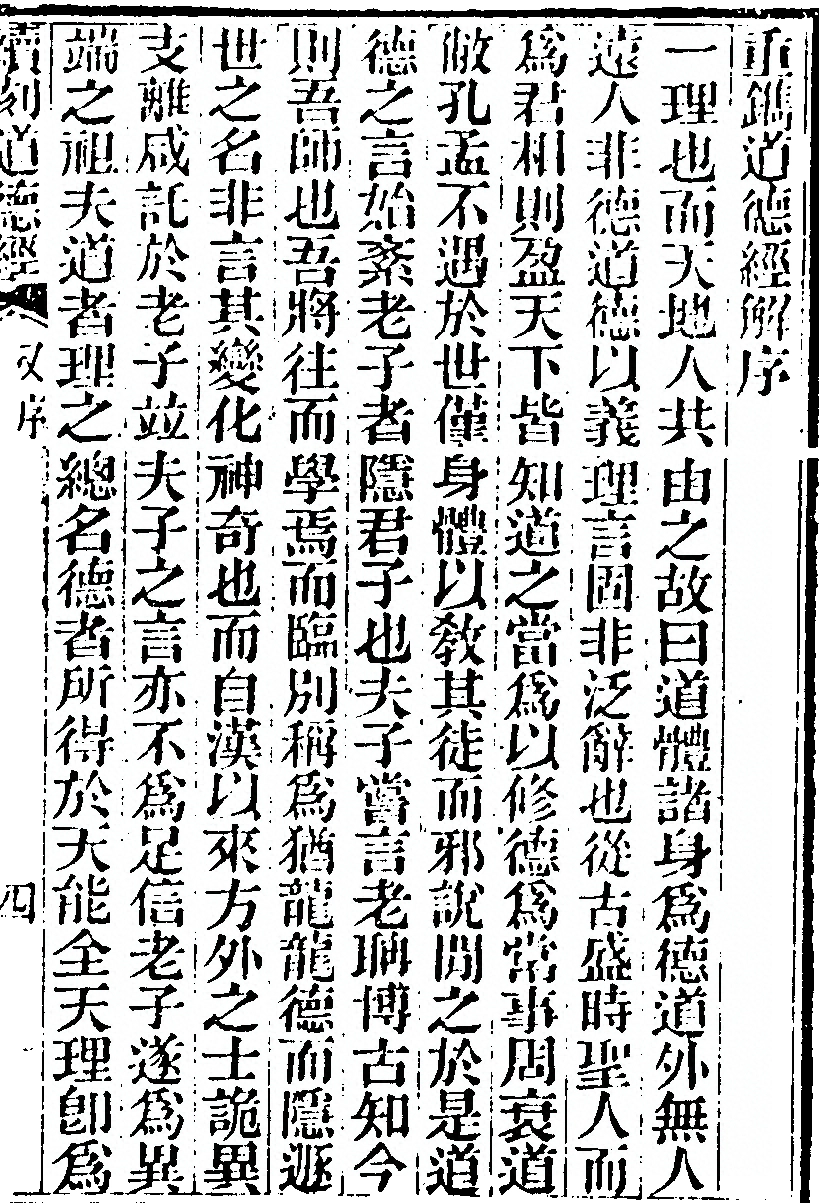 重鐫道德經解序
一理也而天地人共由之故曰道體諸身爲德道外無人
遠人非德道德以義理言固非泛辭也從古盛時聖人而
爲君相則盈天下皆知道之當爲以修德爲常事周衰道
敝孔孟不遇於世僅身體以教其徒而邪說閒之於是道
德之言始紊老子者隱君子也夫子嘗言老聃博古知今
則吾師也吾將往而學焉而臨別稱爲猶龍龍德而隱遯
世之名非言其變化神奇也而自漢以來方外之士詭異
支離咸託於老子竝夫子之言亦不爲足信老子遂爲異
端之祖夫道者理之總名德者所得於天能全天理卽爲
續刻道德經 又序 四